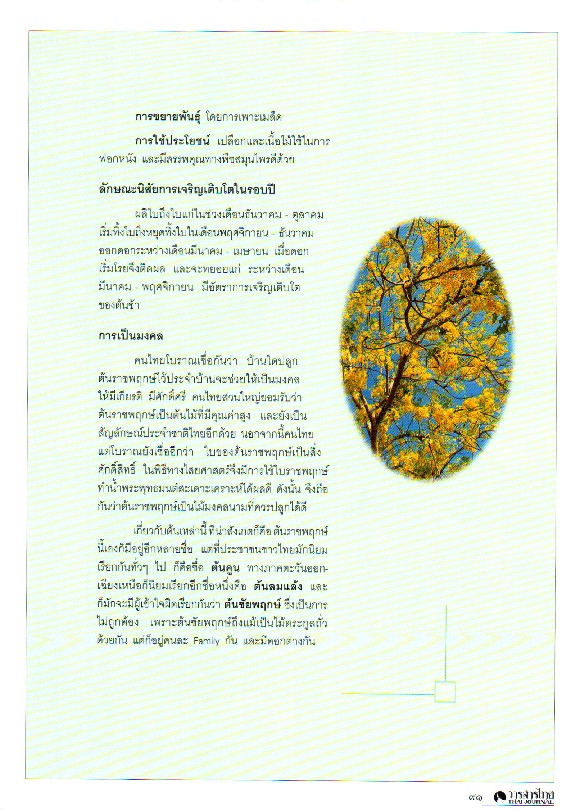 การขยายพันธุ์ โดยการเพาะเมล็ด
การใช้ประโยชน์ เปลือกและเนื้อไม้ใช้ในการ
ฟอกหนัง และมีสรรพคุณทางพืชสมุนไพรดีด้วย
ลักษณะนิสัยการเจริญเติบโตในรอบปี
ผลิใบถึงใบแก่ในช่วงเดือนธันวาคม - ตุลาคม
เริ่มทิ้งใบถึงหยุดทิ้งใบในเดือนพฤศจิกายน - ธันวาคม
ออกดอกระหว่างเดือนมีนาคม - เมษายน เมื่อดอก
เริ่มโรยจึงติดผล และจะทยอยแก่ ระหว่างเดือน
มีนาคม - พฤศจิกายน มีอัตราการเจริญเติบโต
ของต้นช้า
การเป็นมงคล
คนไทยโบราณเชื่อกันว่า บ้านใดปลูก
ต้นราชพฤกษ์ไว้ประจำบ้านจะช่วยให้เป็นมงคล
ให้มีเกียรติ มีศักดิ์ศรี คนไทยส่วนใหญ่ยอมรับว่า
ต้นราชพฤกษ์เป็นต้นไม้ที่มีคุณค่าสูง และยังเป็น
สัญลักษณ์ประจำชาติไทยอีกด้วย นอกจากนี้คนไทย
แต่โบราณยังเชื่ออีกว่า ใบของต้นราชพฤกษ์เป็นสิ่ง
ศักดิ์สิทธิ์ ในพิธีทางไสยศาสตร์จึงมีการใช้ใบราชพฤกษ์
ทำน้ำพระพุทธมนต์สะเดาะเคราะห์ได้ผลดี ดังนั้น จึงถือ
กันว่าต้นราชพฤกษ์เป็นไม้มงคลนามที่ควรปลูกได้ดี
เกี่ยวกับต้นเหล่านี้ ที่น่าสังเกตก็คือ ต้นราชพฤกษ์
นี้เองก็มีอยู่อีกหลายชื่อ แต่ที่ประชาชนชาวไทยมักนิยม
เรียกกันทั่วๆ ไป ก็คือชื่อ ต้นคูน ทางภาคตะวันออก-
เฉียงเหนือก็นิยมเรียกอีกชื่อหนึ่งคือ ต้นลมแล้ง และ
ก็มักจะมีผู้เข้าใจผิดเรียกกันว่า ต้นชัยพฤกษ์ ซึ่งเป็นการ
ไม่ถูกต้อง เพราะต้นชัยพฤกษ์ถึงแม้เป็นไม้ตระกูลถั่ว
ด้วยกัน แต่ก็อยู่คนละ Family กัน และมีดอกต่างกัน
๙๑ วารสารไทย
THAI JOURNAL